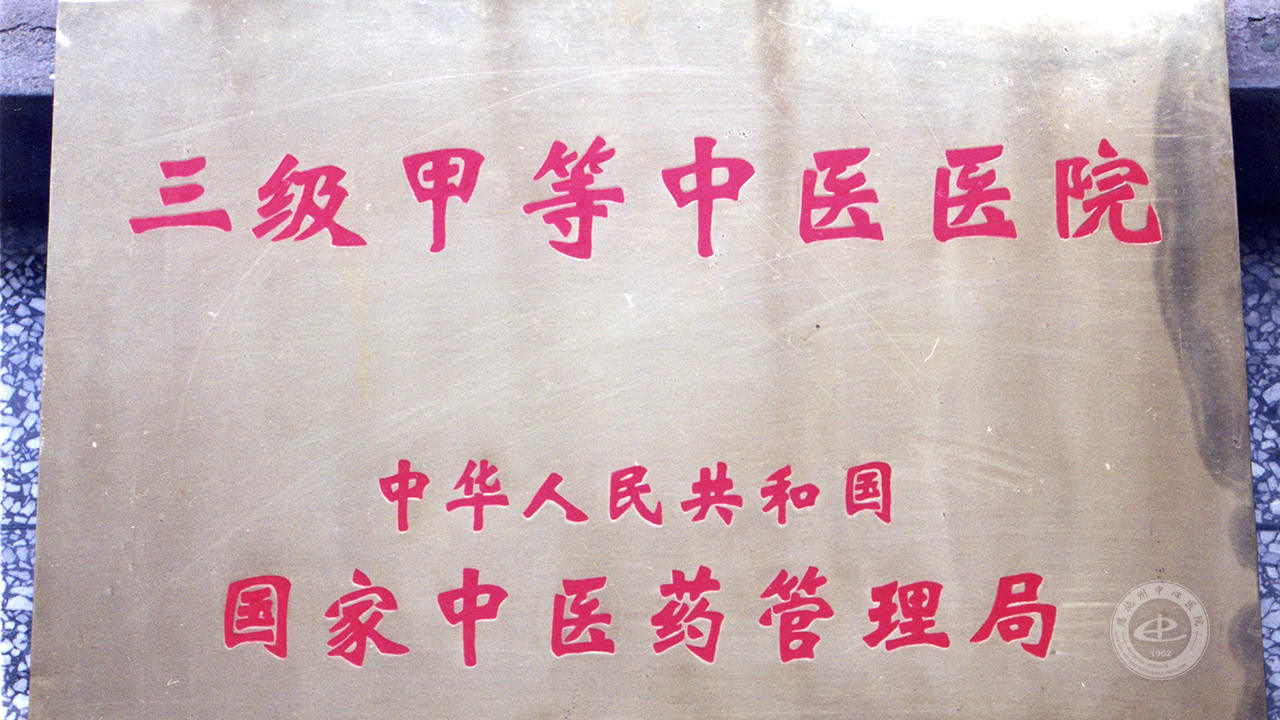 三级甲等中医医院
中华人民共和国
国家中医药管理局
恩施州中心医院
1902